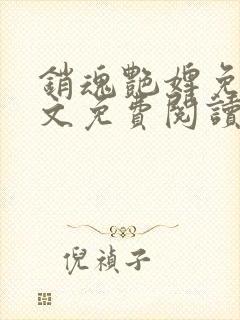 銷魂艷婢免
文免費閱讀
倪禎子